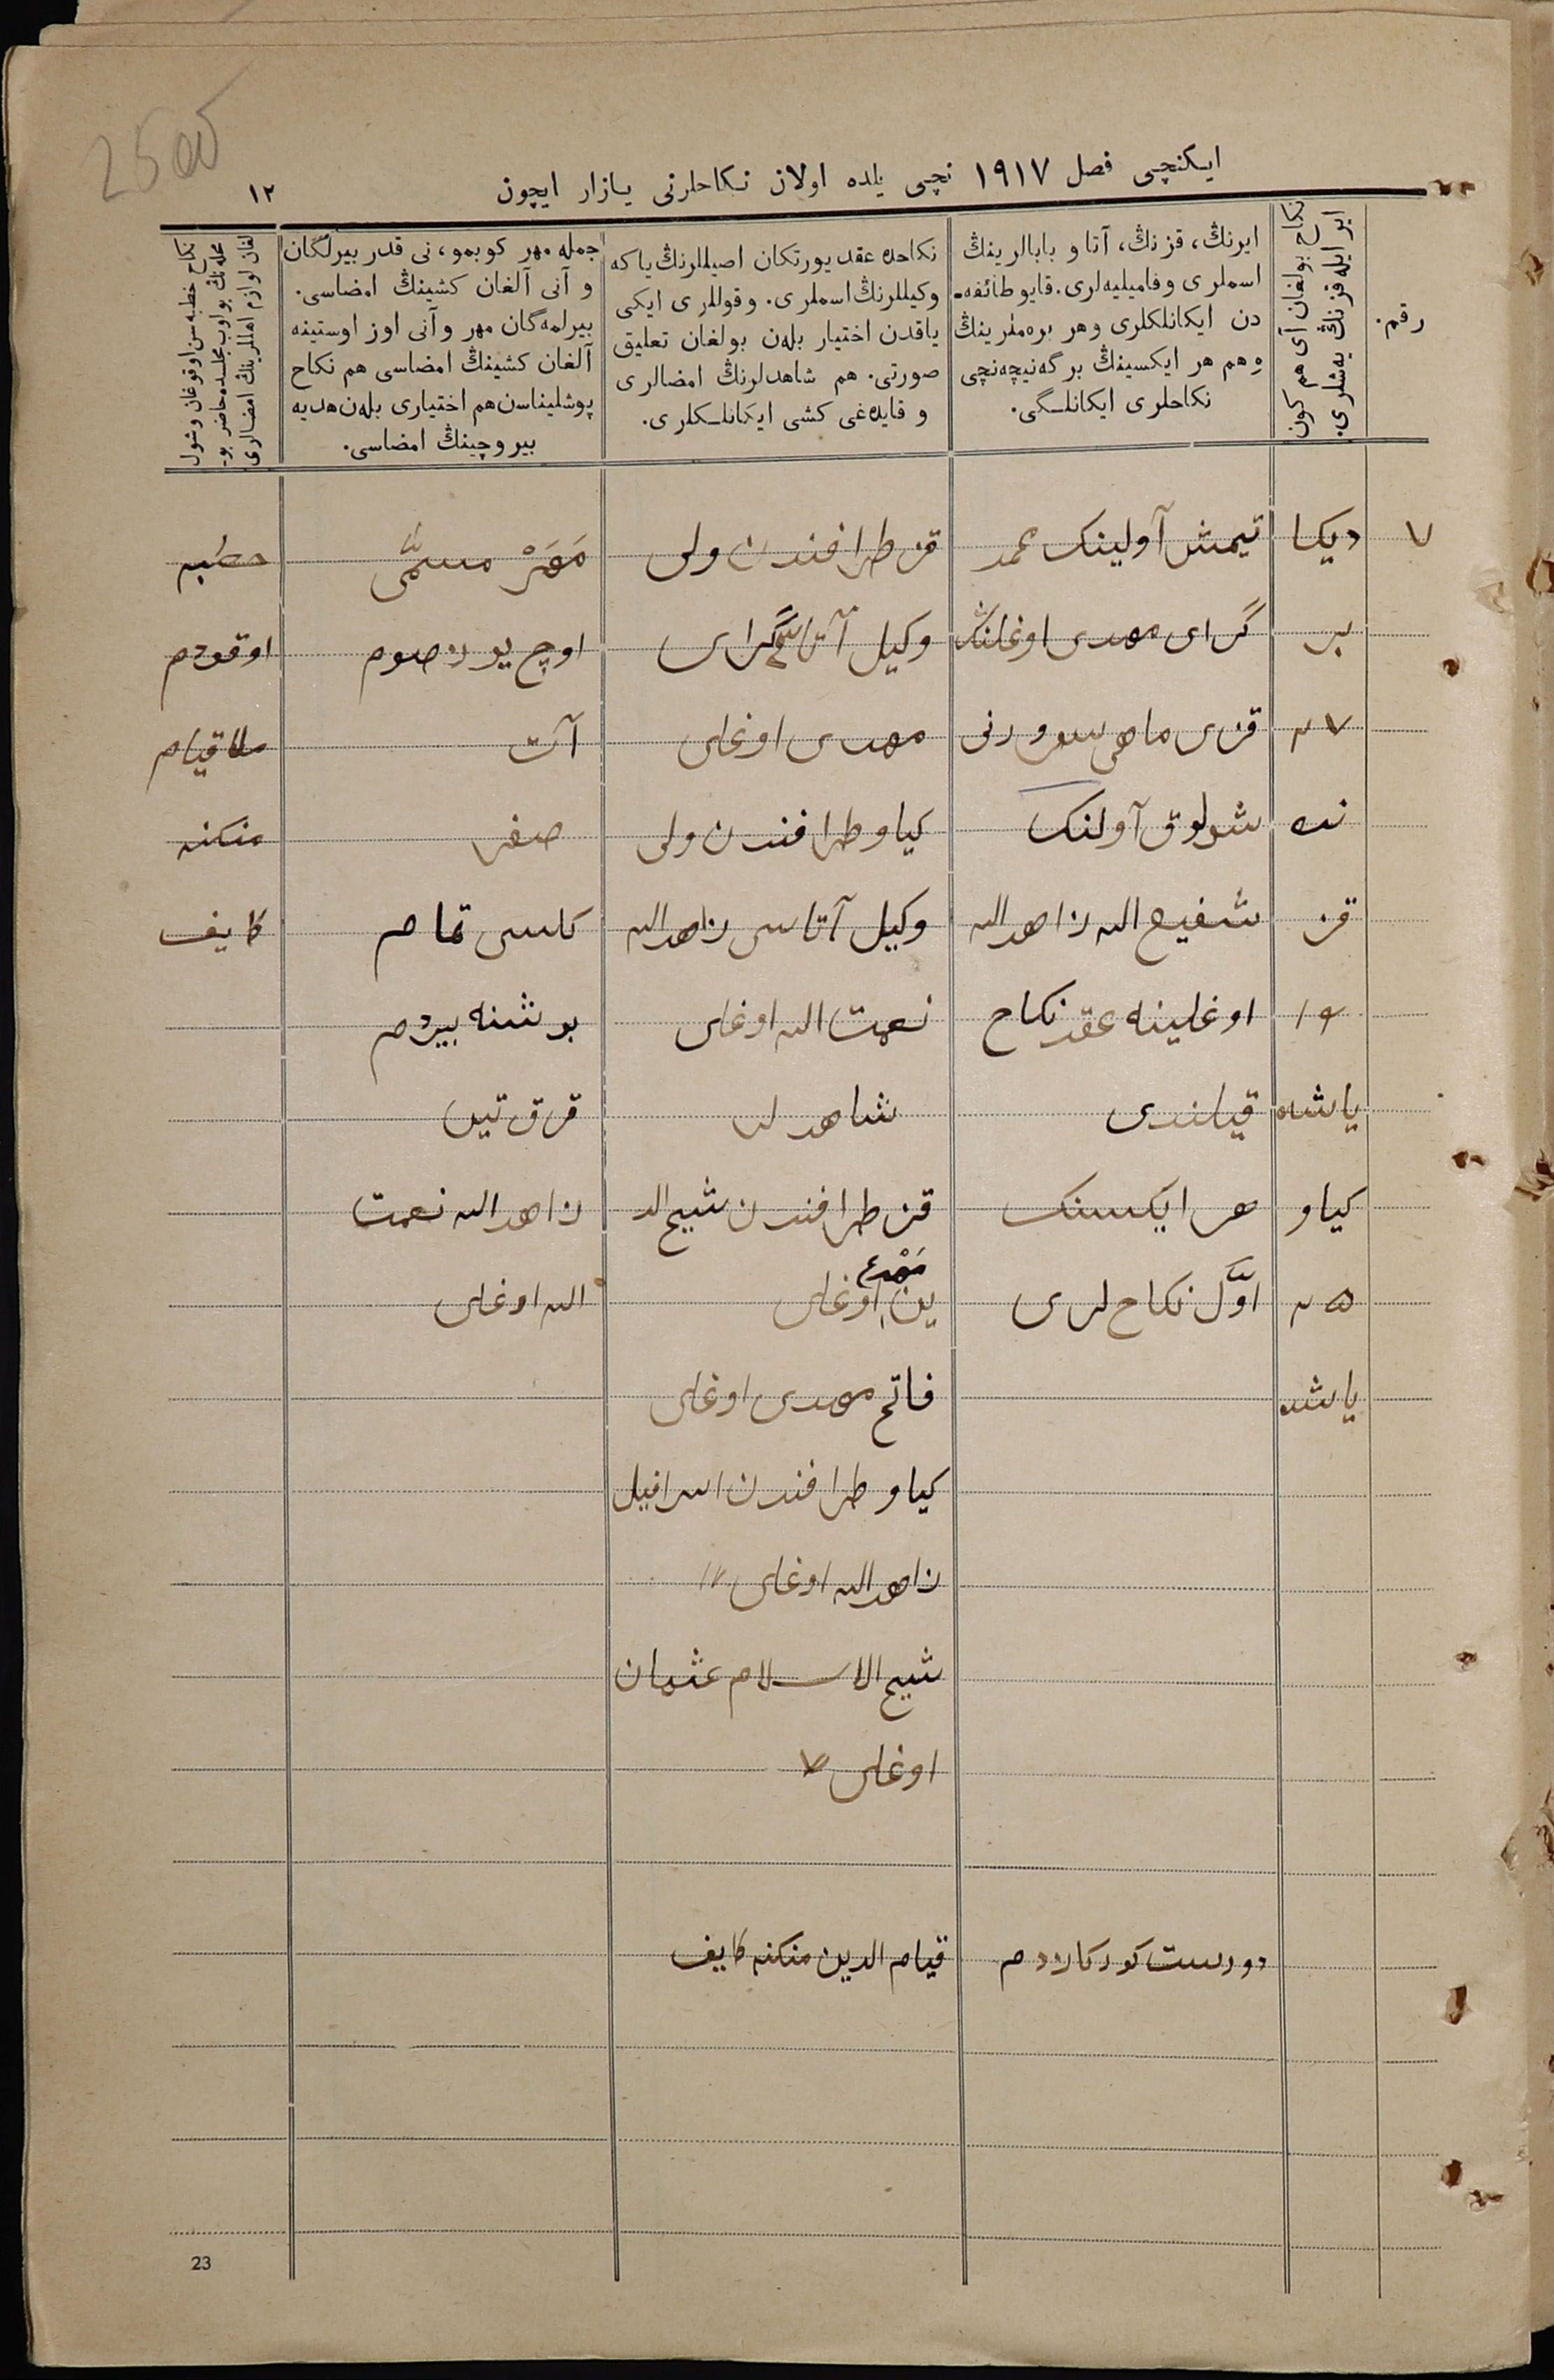 2500
ایکنچی فصل ١٩١٧ نچی یلده اولان نکاحلرنی یازار ایچون
١٢
رقم.
نکاح بولغان آی هم کون
ایر ایله قزنڭ یه‌شلری.
ایرنڭ، قزنڭ، آتا و بابالرینڭ
اسملری و فامیلیه‌لری. قایو طائفه‌-
دن ایکانلکلری وهر بره‌ملرینڭ
وهم هر ایکسینڭ برگه‌نیچه‌نچی
نکاحلری ایکانلگی.
نکاحده عقد یورتکان اصیللرنڭ یا که
وکیللرنڭ اسملری. وقوللری ایکی
یاقدن اختیار بله‌ن بولغان تعلیق
صورتی. هم شاهدلرنڭ امضالری
و قایده‌غی کشی ایکانلکلری.
جمله مهر کوبمو، نی قدر بیرلگان
و آنی آلغان کشینڭ امضاسی.
بیرلمه‌گان مهر و آنی اوز اوستینه
آلغان کشینڭ امضاسی هم نکاح
پوشلیناسن هم اختیاری بله‌ن هدیه
بیروچینڭ امضاسی.
نکاح خطبه‌سن اوقوغان وشول
محله‌نڭ بولوب مجلسده حاضر بو-
لغان اوازم اهللرینڭ امضالری
٧
دیکا
بر
٢٧
نده
قز
١٩
یاشده
کیاو
٢٥
یاشده
تیمش آولینک محمد
گرای مهدی اوغلنڭ
قزی ماهی سرورنی
شولوق آولنک
شفیع الله زاهدالله
اوغلینه عقد نکاح
قیلندی
هر ایکسنک
اوّل نکاح لری
دورست کورکالادم
قز طرافندن ولی
وکیل آتاسی گرای
مهدی اوغلی
کیاو طرافندن ولی
وکیل آتاسی زاهدالله
نعمت الله اوغلی
شاهدلر
قز طرافندن شیخ الد
ین مهدی اوغلی
فاتح مهدی اوغلی
کیاو طرافندن اسرافیل
زاهدالله اوغلی
شیخ الاسلام عثمان
اوغلی
قیام الدین منکنه کایف
مَهَرْ مسمّی
اوچ یوز صوم
آت
صفر
کلسی تمام
بو شنه بیردم
قرق تین
زاهدالله نعمت
الله اوغلی
خطبه
اوقودم
ملا قیام
منکنه
کایف
23